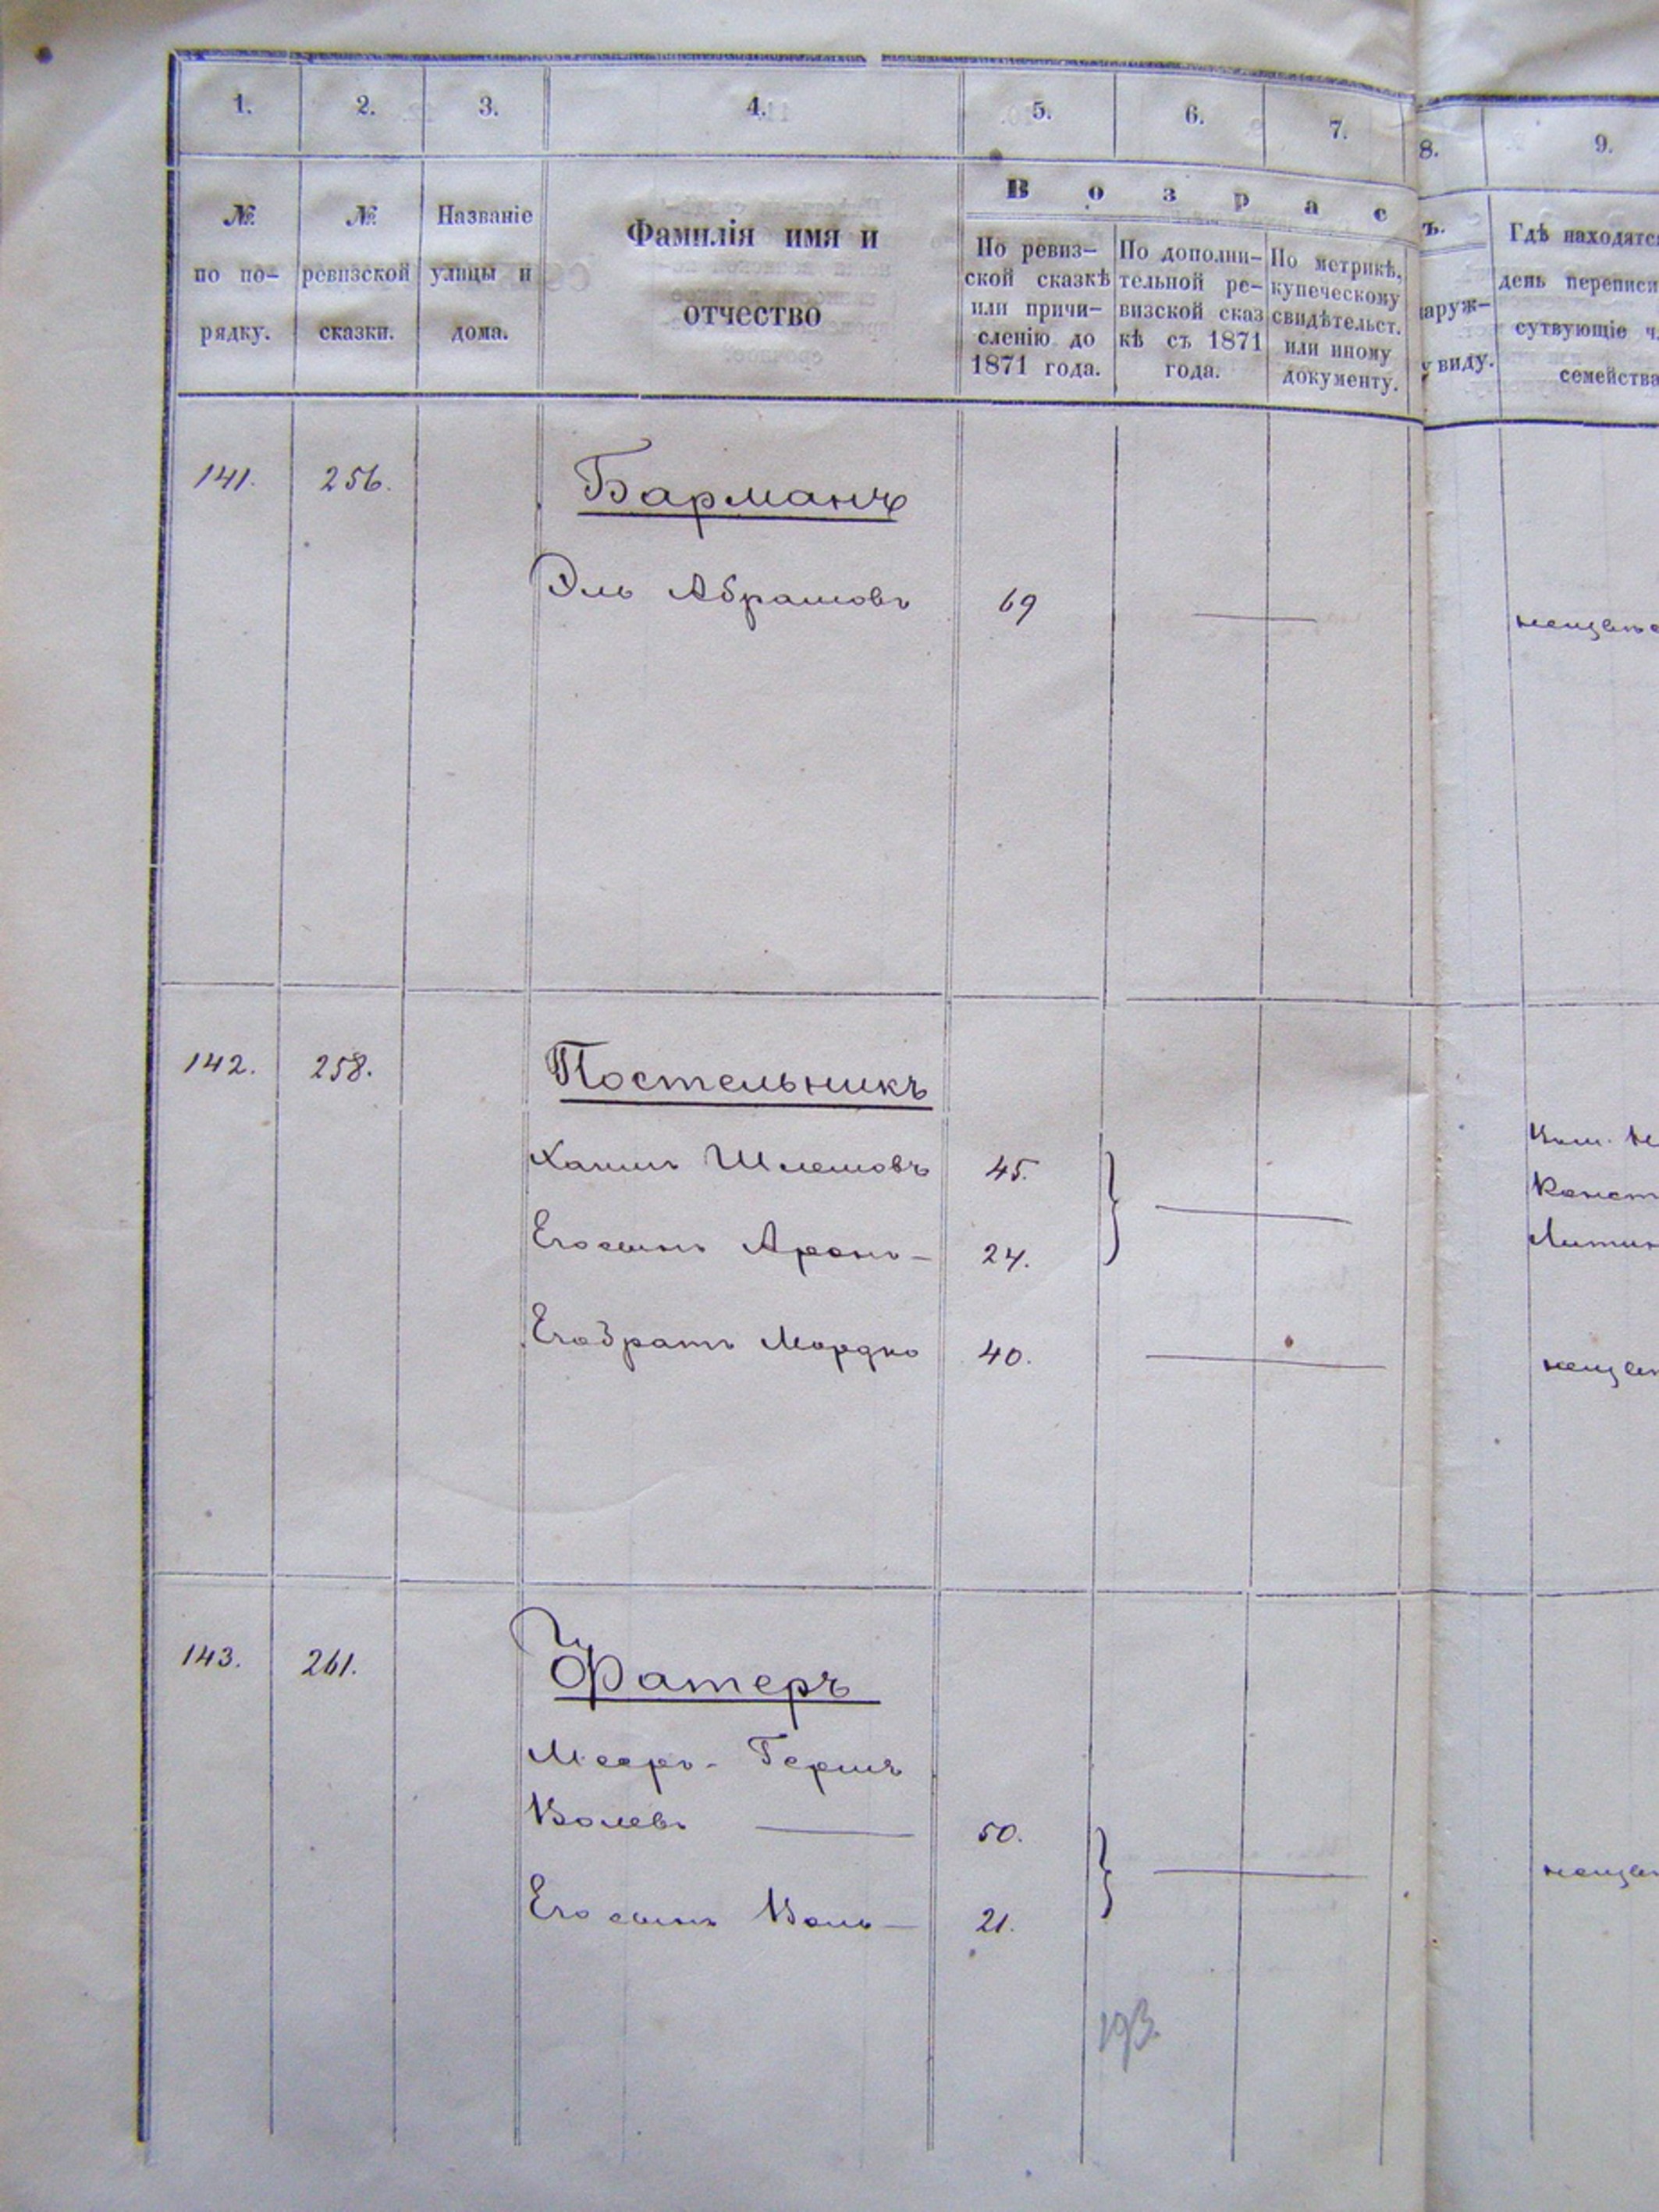 1. 2. 3. 4. 5. 6. 7. 8. 9.
№ по по-рядку.
№ ревизской сказки.
Названіе улицы и дома.
Фамилія имя и отчество
В о з р а с
По ревиз-
ской сказкѣ
или причи-
сленію до
1871 года.
По дополни-
тельной ре-
визской сказ
кѣ съ 1871
года.
По метрикѣ,
купеческому
свидѣтельст.
или иному
документу.
ъ.
аруж-
у виду.
Гдѣ находятс
день переписи
сутвующіе ч
семейства
141. 256. Барманъ
Эль Абрамовъ 69
142. 258. Постельникъ
Хаимъ Шлемовъ 45.
Его сынъ Аронъ — 24.
Его братъ Мордко 40.
Конст
143. 261. Фатеръ
Мееръ - Гершъ
Волевъ — 50.
Его сынъ Воль — 21.
193.